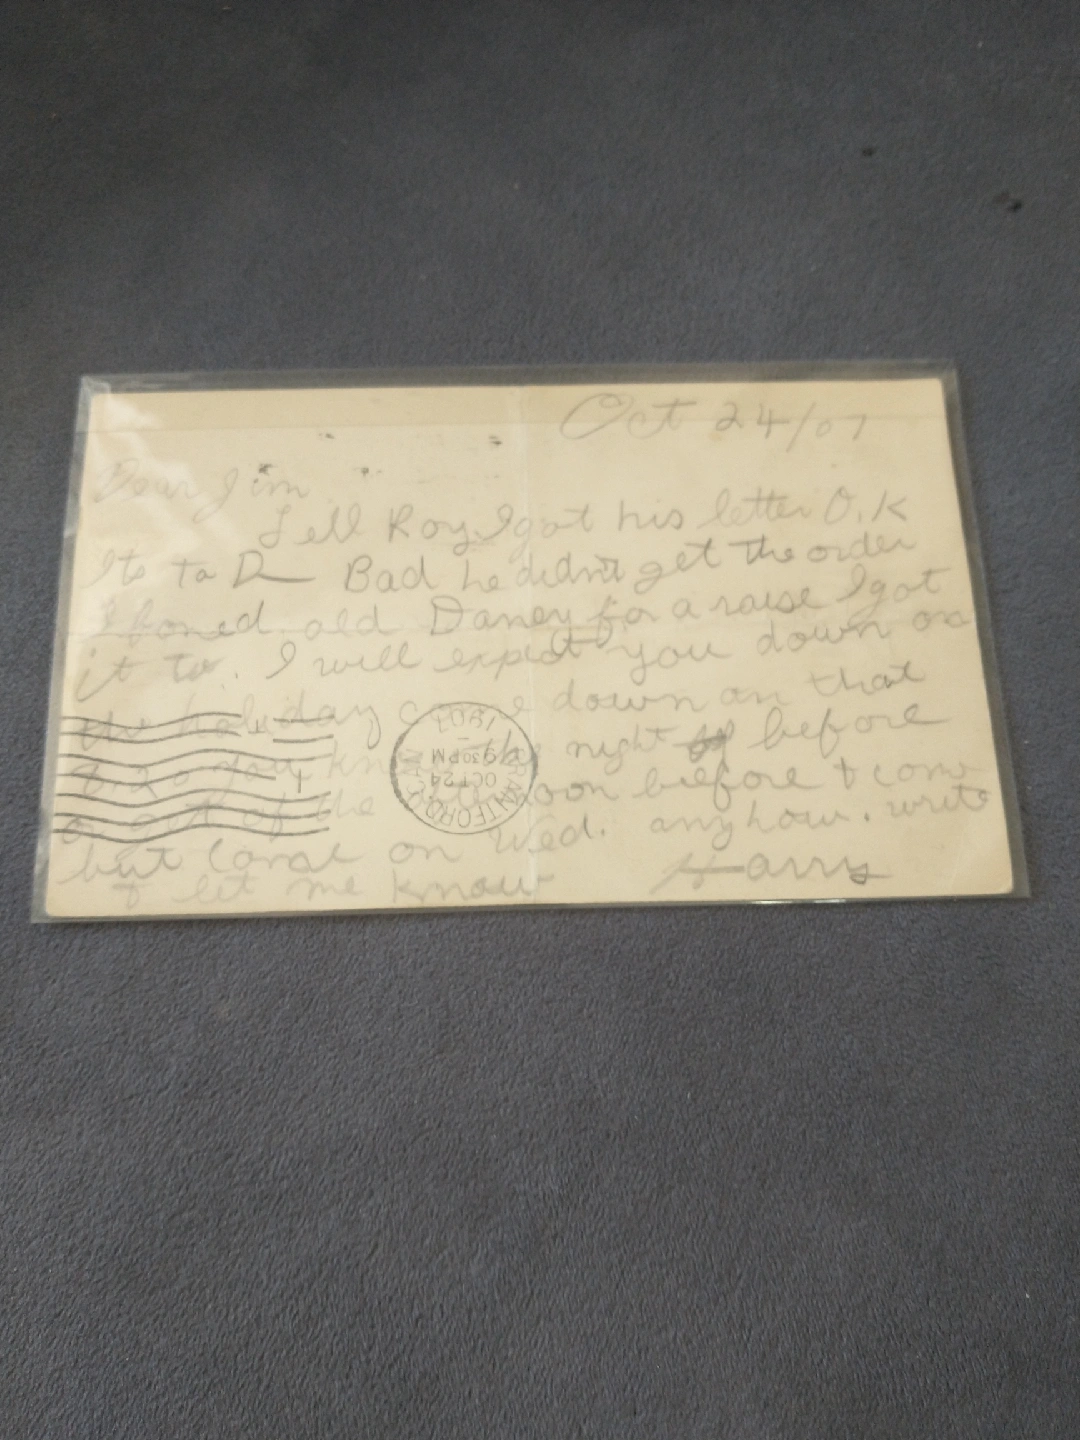 Oct 24/07
Dear Jim
Tell Roy I got his letter O.K
Its to D— Bad he didn't get the order
I foned old Daney for a raise I got
it to. I will expect you down on
the holiday come down on that
8.20 you know the night before
or get off the noon before & come
but come on Wed. anyhow. write
& let me know Harry
BRANTFORD
OCT 24
930PM
1907